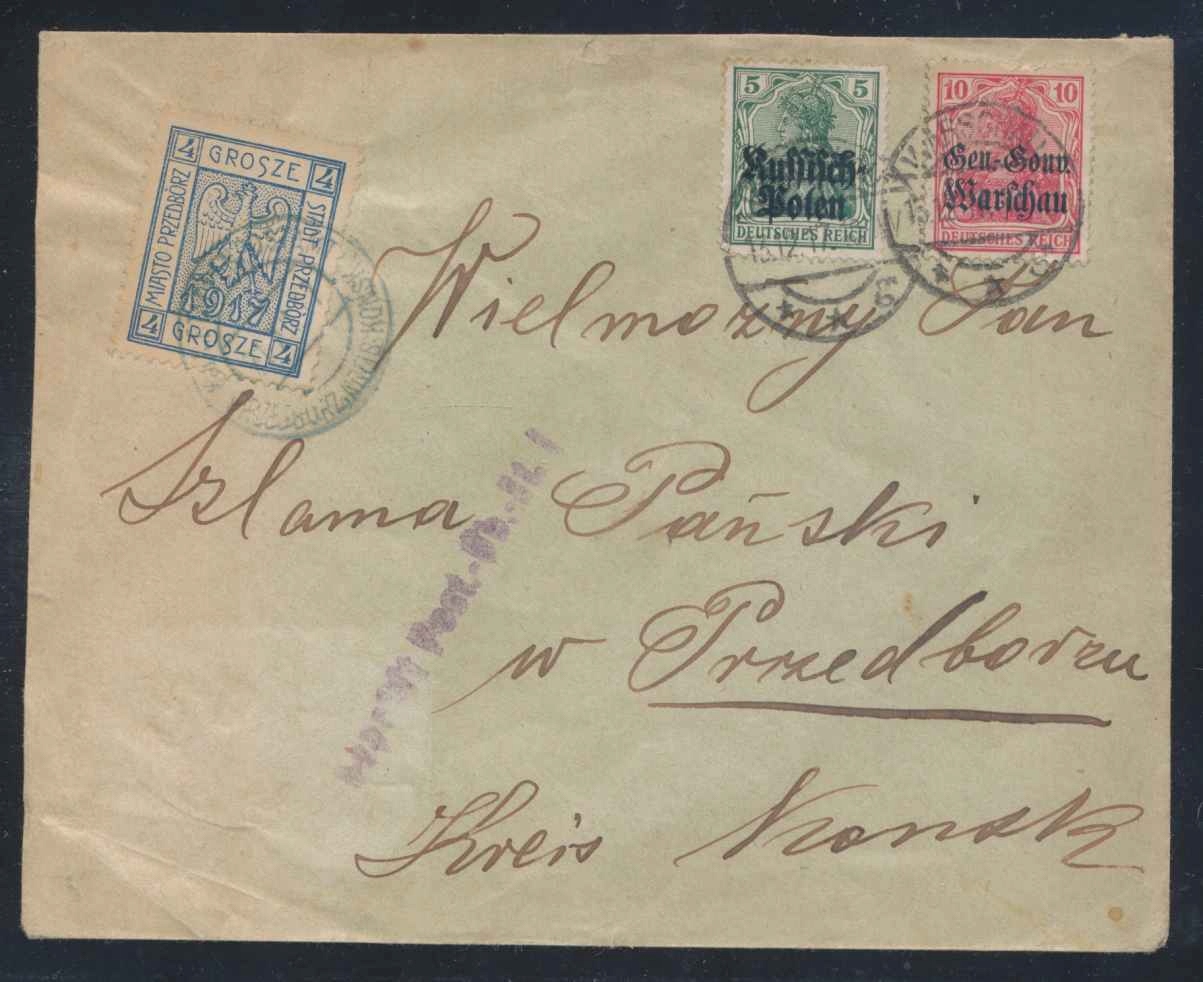 4 GROSZE 4
MIASTO PRZEDBÓRZ
STADT PRZEDBÓRZ
1917
4 GROSZE 4
5 5
Russisch-
Polen
DEUTSCHES REICH
10 10
Gen.-Gouv.
Warschau
DEUTSCHES REICH
Wielmożny Pan
Szlama Pański
w Przedborzu
Kreis Konsk